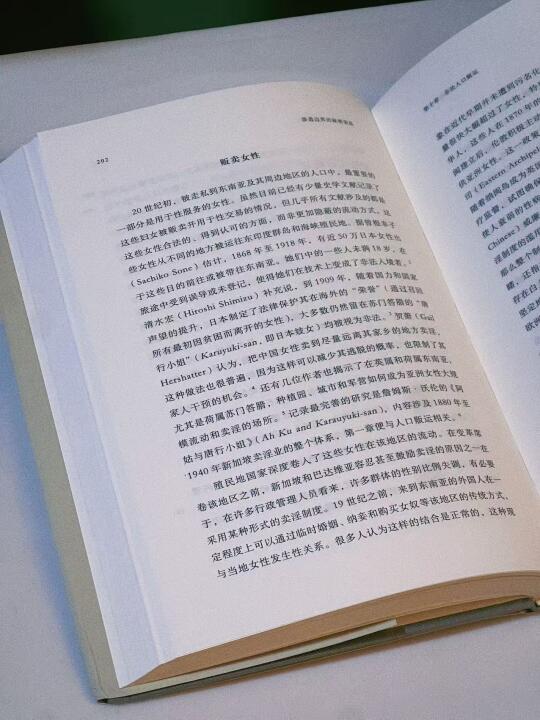 202
贩卖女性
20 世纪初，被走私到东南亚及其周边地区的人口中，最重要的
一部分是用于性服务的女性。虽然目前已经有少量史学文献记录了
这些妇女被贩卖并用于性交易的情况，但几乎所有文献涉及的都是
这些女性合法的、得到认可的方面，而非更加隐蔽的流动方式，这
些女性从不同的地方被运往东印度群岛和海峡殖民地。据曾根幸子
（Sachiko Sone）估计，1868 年至 1918 年，有近 50 万日本女性出
于这些目的前往或被带往东南亚。她们中的一些人未满 18 岁，在
旅途中受到误导或未登记，使得她们在技术上变成了非法入境者。
清水宏（Hiroshi Shimizu）补充说，到 1909 年，随着国力和国家
声望的提升，日本制定了法律保护其在海外的“荣誉”（通过召回
所有最初因贫困而离开的女性），大多数仍然留在苏门答腊的“唐
行小姐”（Karayuki-san，即日本妓女）均被视为非法。³ 贺萧（Gail
Hershatter）认为，把中国女性卖到尽量远离其家乡的地方卖淫，
这种做法也很普遍，因为这样可以减少其逃脱的概率，也限制了其
家人干预的机会。⁴ 还有几位作者也揭示了在英属和荷属东南亚，
尤其是荷属苏门答腊，种植园、城市和军营如何成为亚洲女性大规
模流动和卖淫的场所。⁵ 记录最完善的研究是詹姆斯·沃伦的《阿
姑与唐行小姐》（Ah Ku and Karayuki-san），内容涉及 1880 年至
1940 年新加坡卖淫业的整个体系，第一章便与人口贩运相关。⁶
殖民地国家深度卷入了这些女性在该地区的流动。在变革席
卷该地区之前，新加坡和巴达维亚容忍甚至鼓励卖淫的原因之一在
于，在许多行政管理人员看来，许多群体的性别比例失调，有必要
采用某种形式的卖淫制度。19 世纪之前，来到东南亚的外国人在一
定程度上可以通过临时婚姻、纳妾和购买女奴等该地区的传统方式，
与当地女性发生性关系。很多人认为这样的结合是正常的，这种现
象在近代早期并未遭到污名化
量很快大幅超过了女性，
华人，这些人在 1870 年的
阀建立后，伦敦积极主动
供亚洲女性。这一政策